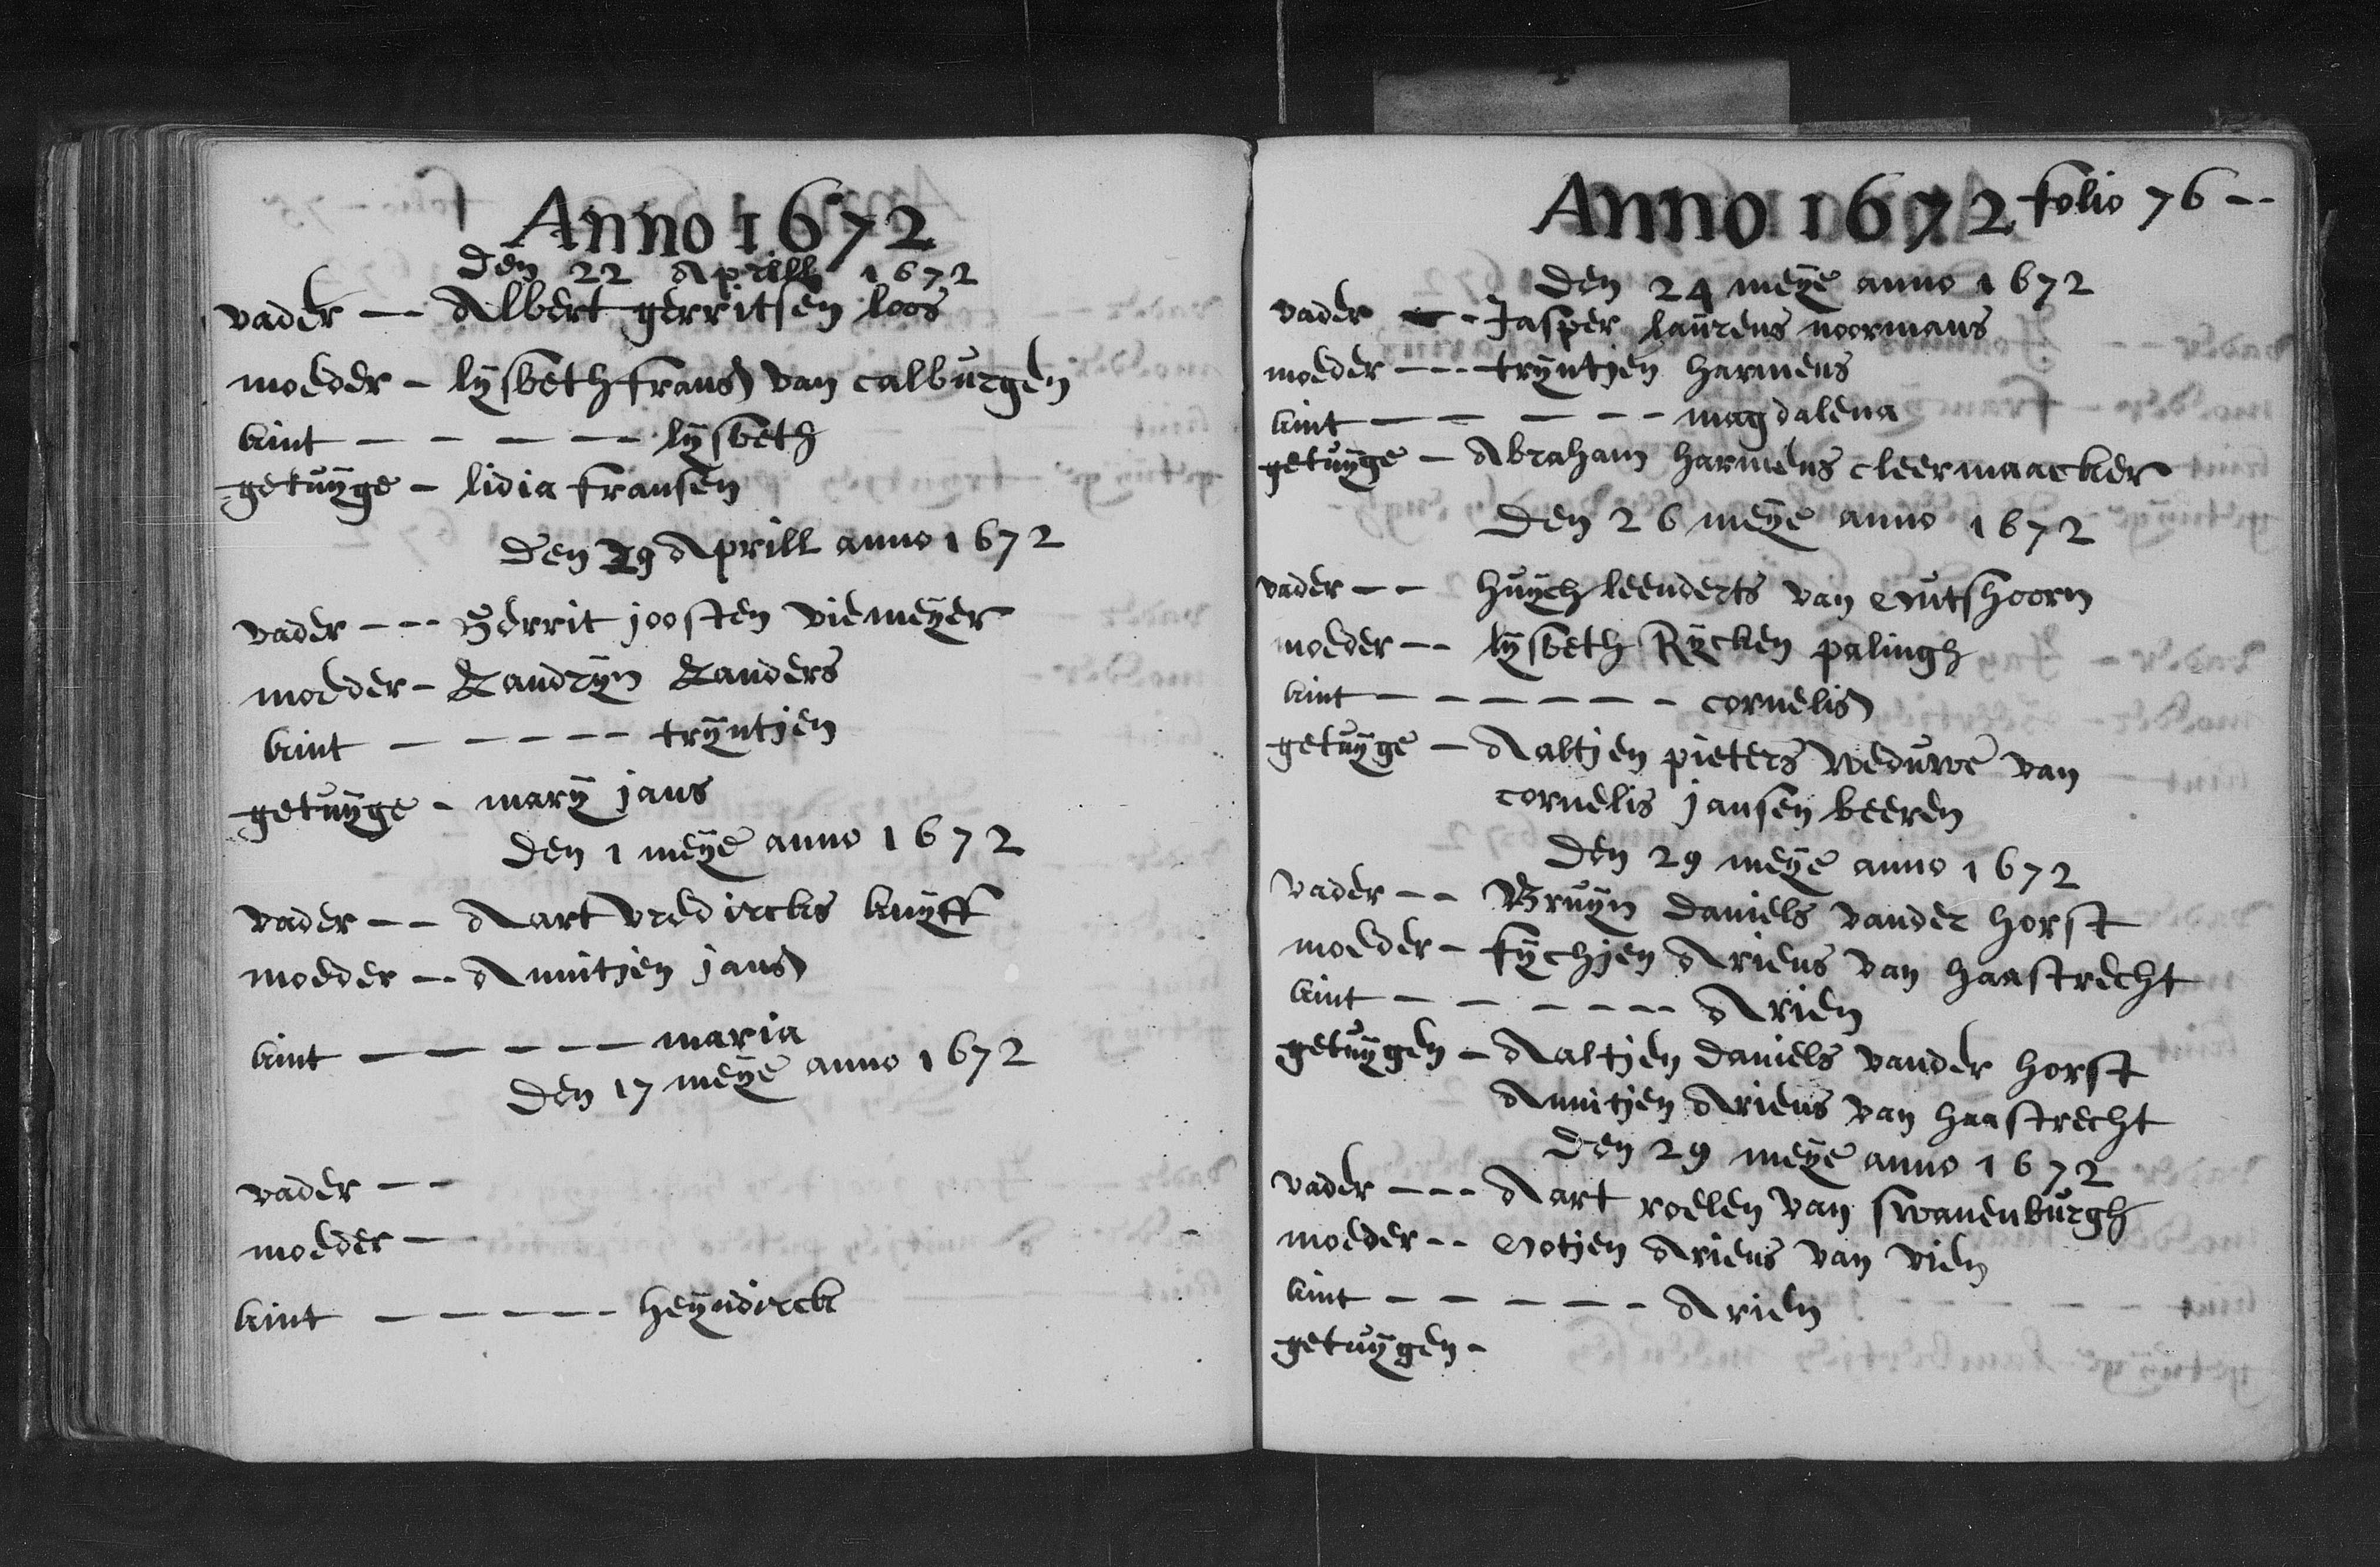 Anno 1672
Den 22 Aprill 1672
vader — Albert gerritsen loos
moeder – lÿsbeth frans van calburgen
kint — – – — — lÿsbeth
getuÿge – lidia fransen
Den 29 Aprill anno 1672
vader – – – Gerrit joosten viemeÿer
moeder – Sandrÿn Sanders
kint — — – – – trÿntjen
getuÿge – marÿ jans
Den 1 meÿe anno 1672
vader – – Aart vredircks kuÿff
moeder – – Annitjen jans
kint — — – – — maria
Den 17 meÿe anno 1672
vader – –
moeder —
kint — – – – – heÿndirck
Anno 1672 folio 76 – –
Den 24 meÿe anno 1672
vader – – Jasper laurens noormans
moeder – – – trÿntjen harmens
kint — – – – – – magdalena
getuÿge – Abraham harmens cleermaacker
Den 26 meÿe anno 1672
vader – – huÿch leenderts van Outshoorn
moeder – – lÿsbeth Rÿcken palingh
kint – – – – – – – cornelis
getuÿge – Aaltjen pieters weduwe van
cornelis jansen beeren
Den 29 meÿe anno 1672
vader – – Bruÿn daniels vander horst
moeder – fÿchjen Ariens van haastrecht
kint – – – – – – Arien
getuÿgen – Aaltjen daniels vander horst
Annitjen Ariens van haastrecht
Den 29 meÿe anno 1672
vader – – – Aart roelen van swanenburgh
moeder – – Ootjen Ariens van vien
kint – – – – – – Arien
getuÿgen –